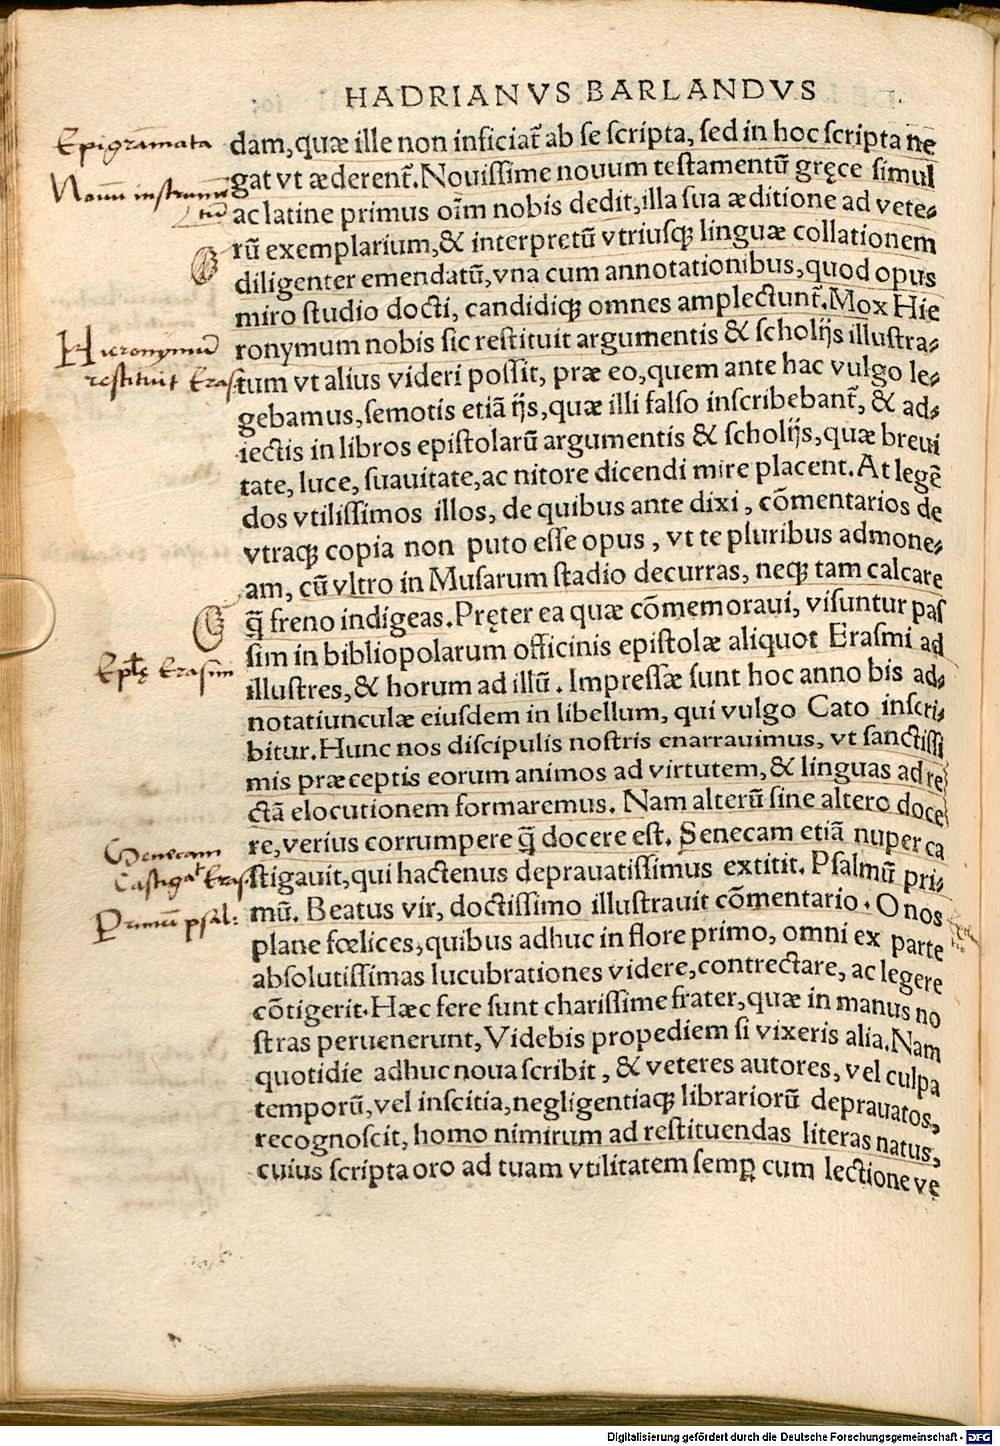 HADRIANVS BARLANDVS
Epigrāmata
dam, quæ ille non inficiat᷑ ab se scripta, sed in hoc scripta ne
Nouū instrumē
tū
gat vt æderent᷑. Nouissime nouum testamentū gręce simul
ac latine primus oīm nobis dedit, illa sua æditione ad vete⸗
rū exemplarium, & interpretū vtriusqꝫ linguæ collationem
diligenter emendatū, vna cum annotationibus, quod opus
miro studio docti, candidiqꝫ omnes amplectunt᷑. Mox Hie
Hieronymū
restituit Eras:
ronymum nobis sic restituit argumentis & scholijs illustra⸗
tum vt alius videri possit, præ eo, quem ante hac vulgo le⸗
gebamus, semotis etiā ijs, quæ illi falso inscribebant᷑, & ad⸗
iectis in libros epistolarū argumentis & scholijs, quæ breui
tate, luce, suauitate, ac nitore dicendi mire placent. At legē
dos vtilissimos illos, de quibus ante dixi, cōmentarios de
vtraqꝫ copia non puto esse opus, vt te pluribus admone⸗
am, cū vltro in Musarum stadio decurras, neqꝫ tam calcare
q̄ freno indigeas. Pręter ea quæ cōmemoraui, visuntur pas
sim in bibliopolarum officinis epistolæ aliquot Erasmi ad
Eptę Erasmi
illustres, & horum ad illū. Impressæ sunt hoc anno bis ad⸗
notatiunculæ eiusdem in libellum, qui vulgo Cato inscri⸗
bitur. Hunc nos discipulis nostris enarrauimus, vt sanctissi
mis præceptis eorum animos ad virtutem, & linguas ad re
ctā elocutionem formaremus. Nam alterū sine altero doce
re, verius corrumpere q̄ docere est. Senecam etiā nuper ca
Senecam
Castigat Eras:
stigauit, qui hactenus deprauatissimus extitit. Psalmū pri⸗
Primū psal:
mū. Beatus vir, doctissimo illustrauit cōmentario. O nos
plane fœlices, quibus adhuc in flore primo, omni ex parte
absolutissimas lucubrationes videre, contrectare, ac legere
cōtigerit. Hæc fere sunt charissime frater, quæ in manus no
stras peruenerunt, Videbis propediem si vixeris alia. Nam
quotidie adhuc noua scribit, & veteres autores, vel culpa
temporū, vel inscitia, negligentiaqꝫ librariorū deprauatos,
recognoscit, homo nimirum ad restituendas literas natus,
cuius scripta oro ad tuam vtilitatem semꝑ cum lectione ve
Digitalisierung gefördert durch die Deutsche Forschungsgemeinschaft - DFG